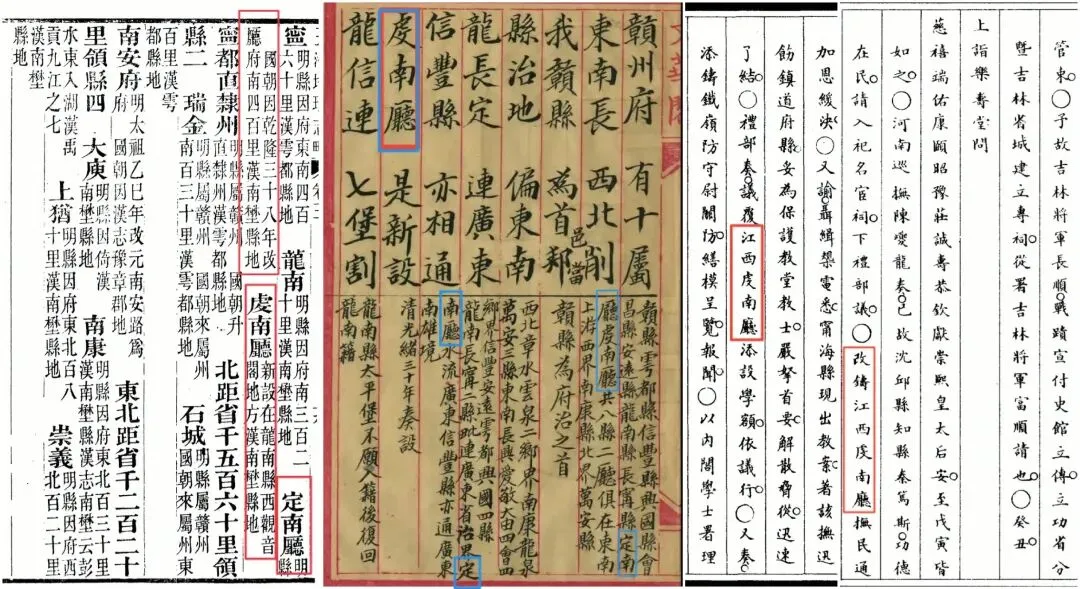 寧 明縣因府東南四百六十里漢雩都縣地 龍南 明縣因府南三百二十里漢南壄縣地 定南廳 明縣
國朝因乾隆三十八年改廳府南四百里漢南壄縣地 虔南廳 新設在龍南縣西觀音閣地方漢南壄縣地
寧都直隸州 明縣屬贛州 國朝升直隸州漢雩都縣地 北距省千五百六十里領
縣二 瑞金 明縣屬贛州 國朝來屬州南百三十里漢雩都縣地 石城 明縣屬贛州國朝來屬州東
百里漢雩都縣地
南安府 明太祖乙巳年改元南安路爲府 國朝因漢志豫章郡地 東北距省千二百二十
里領縣四 大庾 明縣因倚漢南壄縣地 南康 明縣因府東北百三十里漢南壄縣漢志南壄云彭
水東入湖漢禹貢九江之七 上猶 明縣因府東北百八十里漢南壄縣地 崇義 明縣因府西北百二十里
漢南壄縣地
贛州府 有十屬
東南長 西北削
我贛縣 為首邑當
縣治地 偏東南
龍長定 連廣東
信豐縣 亦相通
虔南廳 是新設
龍信連 七堡割
贛縣雩都縣信豐縣興國縣會
昌縣安遠縣龍南縣長寧縣定南
廳虔南廳共八縣二廳俱在東南
上游西界南康縣北界萬安縣
贛縣為府治之首
西北章水雲泉二鄉界南康龍泉
萬安三縣東南長興愛敬大由四會四
鄉界信豐安遠雩都興國四縣
龍南長寧二縣毗連廣東省治界定
南廳水流廣東信豐縣亦通廣東
南雄境
清光緒三十年奏設
龍南縣太平堡不願入籍後復回
龍南籍
加恩緩決○又諭聶緝椝電悉甯海縣現出教案著該撫迅
飭鎮道府縣妥為保護教堂教士嚴拏首要解散脅從迅速
了結○禮部奏議覆江西虔南廳添設學額依議行○又奏
添鑄鐵嶺防守尉關防繕模呈覽報聞○以內閣學士署理
管束○予故吉林將軍長順戰蹟宣付史館立傳立功省分
暨吉林省城建立專祠從署吉林將軍富順請也○癸丑
上詣樂壽堂問
慈禧端佑康頤昭豫莊誠壽恭欽獻崇熙皇太后安至戊寅皆
如之○河南巡撫陳夔龍奏已故沈邱縣知縣秦篤斯功德
在民請入祀名宦祠下禮部議○改鑄江西虔南廳撫民通